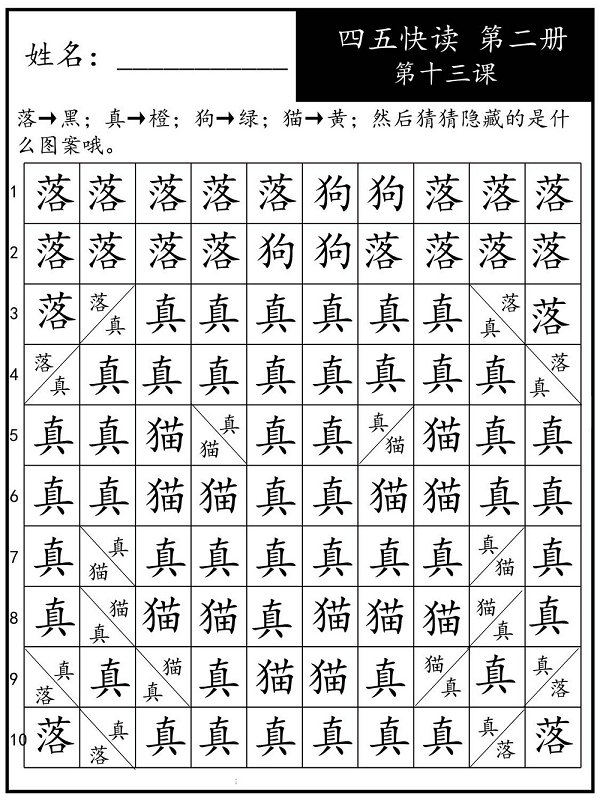 姓名：___________
四五快读 第二册
第十三课
落→黑；真→橙；狗→绿；猫→黄；然后猜猜隐藏的是什
么图案哦。
1 落 落 落 落 落 狗 狗 落 落 落
2 落 落 落 落 狗 狗 落 落 落 落
3 落 落 真 真 真 真 真 真 真 落 真 落
4 落 真 真 真 真 真 真 真 真 真 落 真
5 真 真 猫 真 猫 真 真 真 猫 猫 真 真
6 真 真 猫 猫 真 真 猫 猫 真 真
7 真 真 猫 真 真 真 真 真 真 真 猫 真
8 真 猫 真 猫 猫 真 猫 猫 猫 猫 真 真
9 真 落 真 猫 真 真 猫 猫 真 猫 真 真 真 落
10 落 真 落 真 真 真 真 真 真 真 落 落